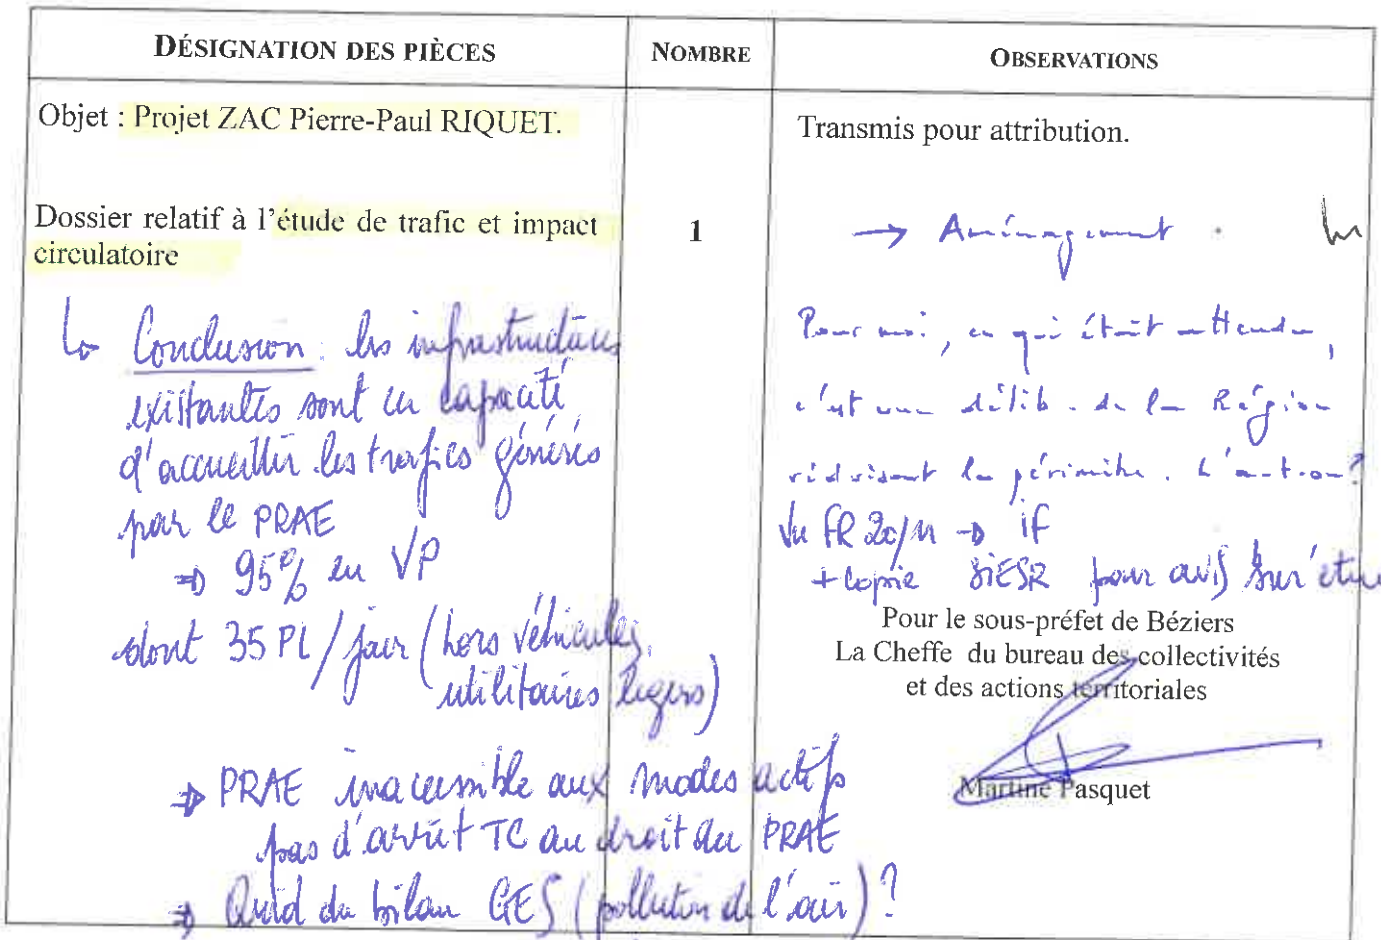 DÉSIGNATION DES PIÈCES
NOMBRE
OBSERVATIONS
Objet : Projet ZAC Pierre-Paul RIQUET.
Dossier relatif à l'étude de trafic et impact
circulatoire
↳ Conclusion : les infrastructures
existantes sont en capacité
d'accueillir les trafics générés
par le PRAE
⇒ 95% en VP
dont 35 PL/jour (hors véhicules
utilitaires légers)
⇒ PRAE inaccessible aux modes actifs
pas d'arrêt TC au droit du PRAE
⇒ Quid du bilan GES (pollution de l'air) ?
1
Transmis pour attribution.
→ Aménagement.
Pour moi, ce qui était attendu,
c'est une délib. de la Région
réduisant le périmètre. L'a-t-on ?
Vu FR 20/11 → IF
+ copie SIESR pour avis sur étu
Pour le sous-préfet de Béziers
La Cheffe du bureau des collectivités
et des actions territoriales
Martine Pasquet